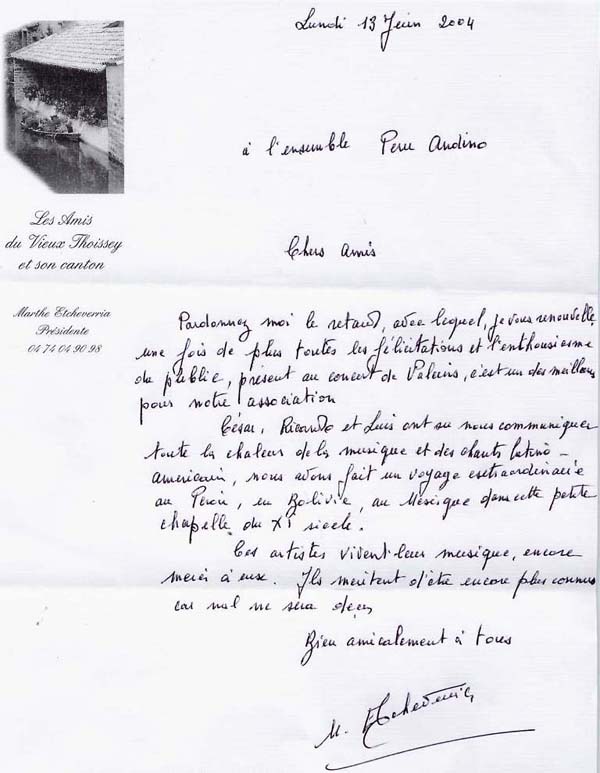 Lundi 13 Juin 2004
à l'ensemble Peru Andino
Les Amis
du Vieux Thoissey
et son canton
Chers amis
Marthe Etcheverria
Présidente
04 74 04 90 98
Pardonnez moi le retard, avec lequel, je vous renouvelle
une fois de plus toutes les félicitations et l'enthousiasme
du public, présent au concert de Valeins, c'est un des meilleurs
pour notre association
César, Ricardo et Luis ont su nous communiquer
toute la chaleur de la musique et des chants latino-
americain, nous avons fait un voyage extraordinaire
au Pérou, en Bolivie, au Mexique dans cette petite
chapelle du XIe siecle.
Ces artistes vivent leur musique, encore
merci à eux. Ils méritent d'être encore plus connus
car nul ne sera déçu
Bien amicalement à tous
M. Etcheverria